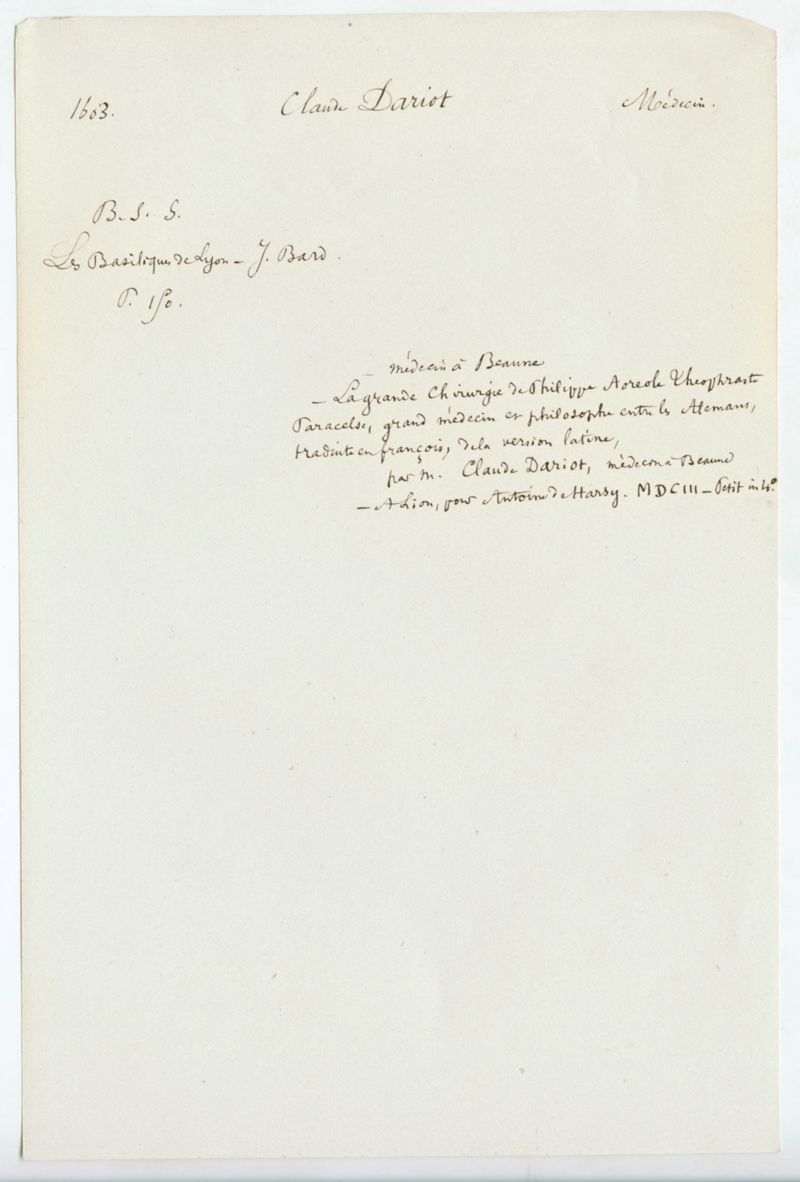 1603. Claude Dariot Médecin.
B. S. G.
Les Basiliques de Lyon - J. Bard.
P. 150.
- médecin à Beaune
- La grande Chirurgie de Philippe Aoreole Theophraste
Paracelse, grand médecin et philosophe entre les Alemans,
traduite en françois, de la version latine,
par m. Claude Dariot, médecin à Beaune
- A Lion, pour Antoine de Harsy. MDCIII - Petit in 4º